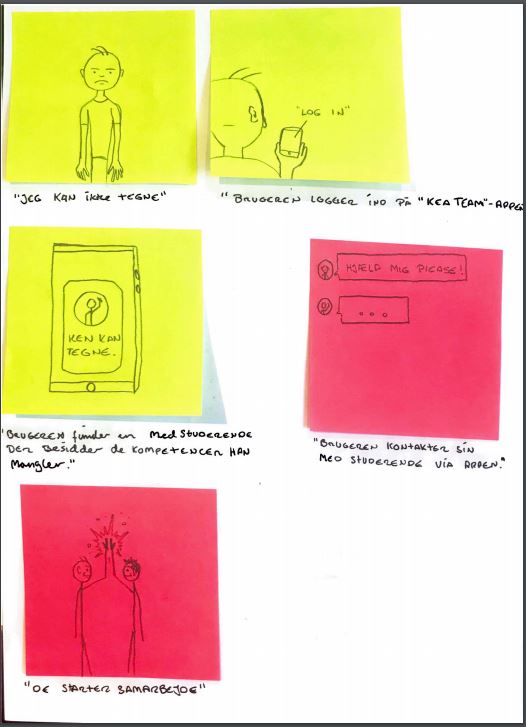 "JEG KAN IKKE TEGNE"
"LOG IN"
"BRUGEREN LOGGER IND PÅ "KEA TEAM"-APPEN
KEN KAN
TEGNE.
"BRUGEREN finder en MEDSTUDERENDE
DER BESIDDER DE KOMPETENCER HAN
Mangler."
HJÆLP MIG PLEASE!
...
"BRUGEREN KONTAKTER SIN
MED STUDERENDE VIA APPEN."
"DE STARTER SAMARBEJDE"